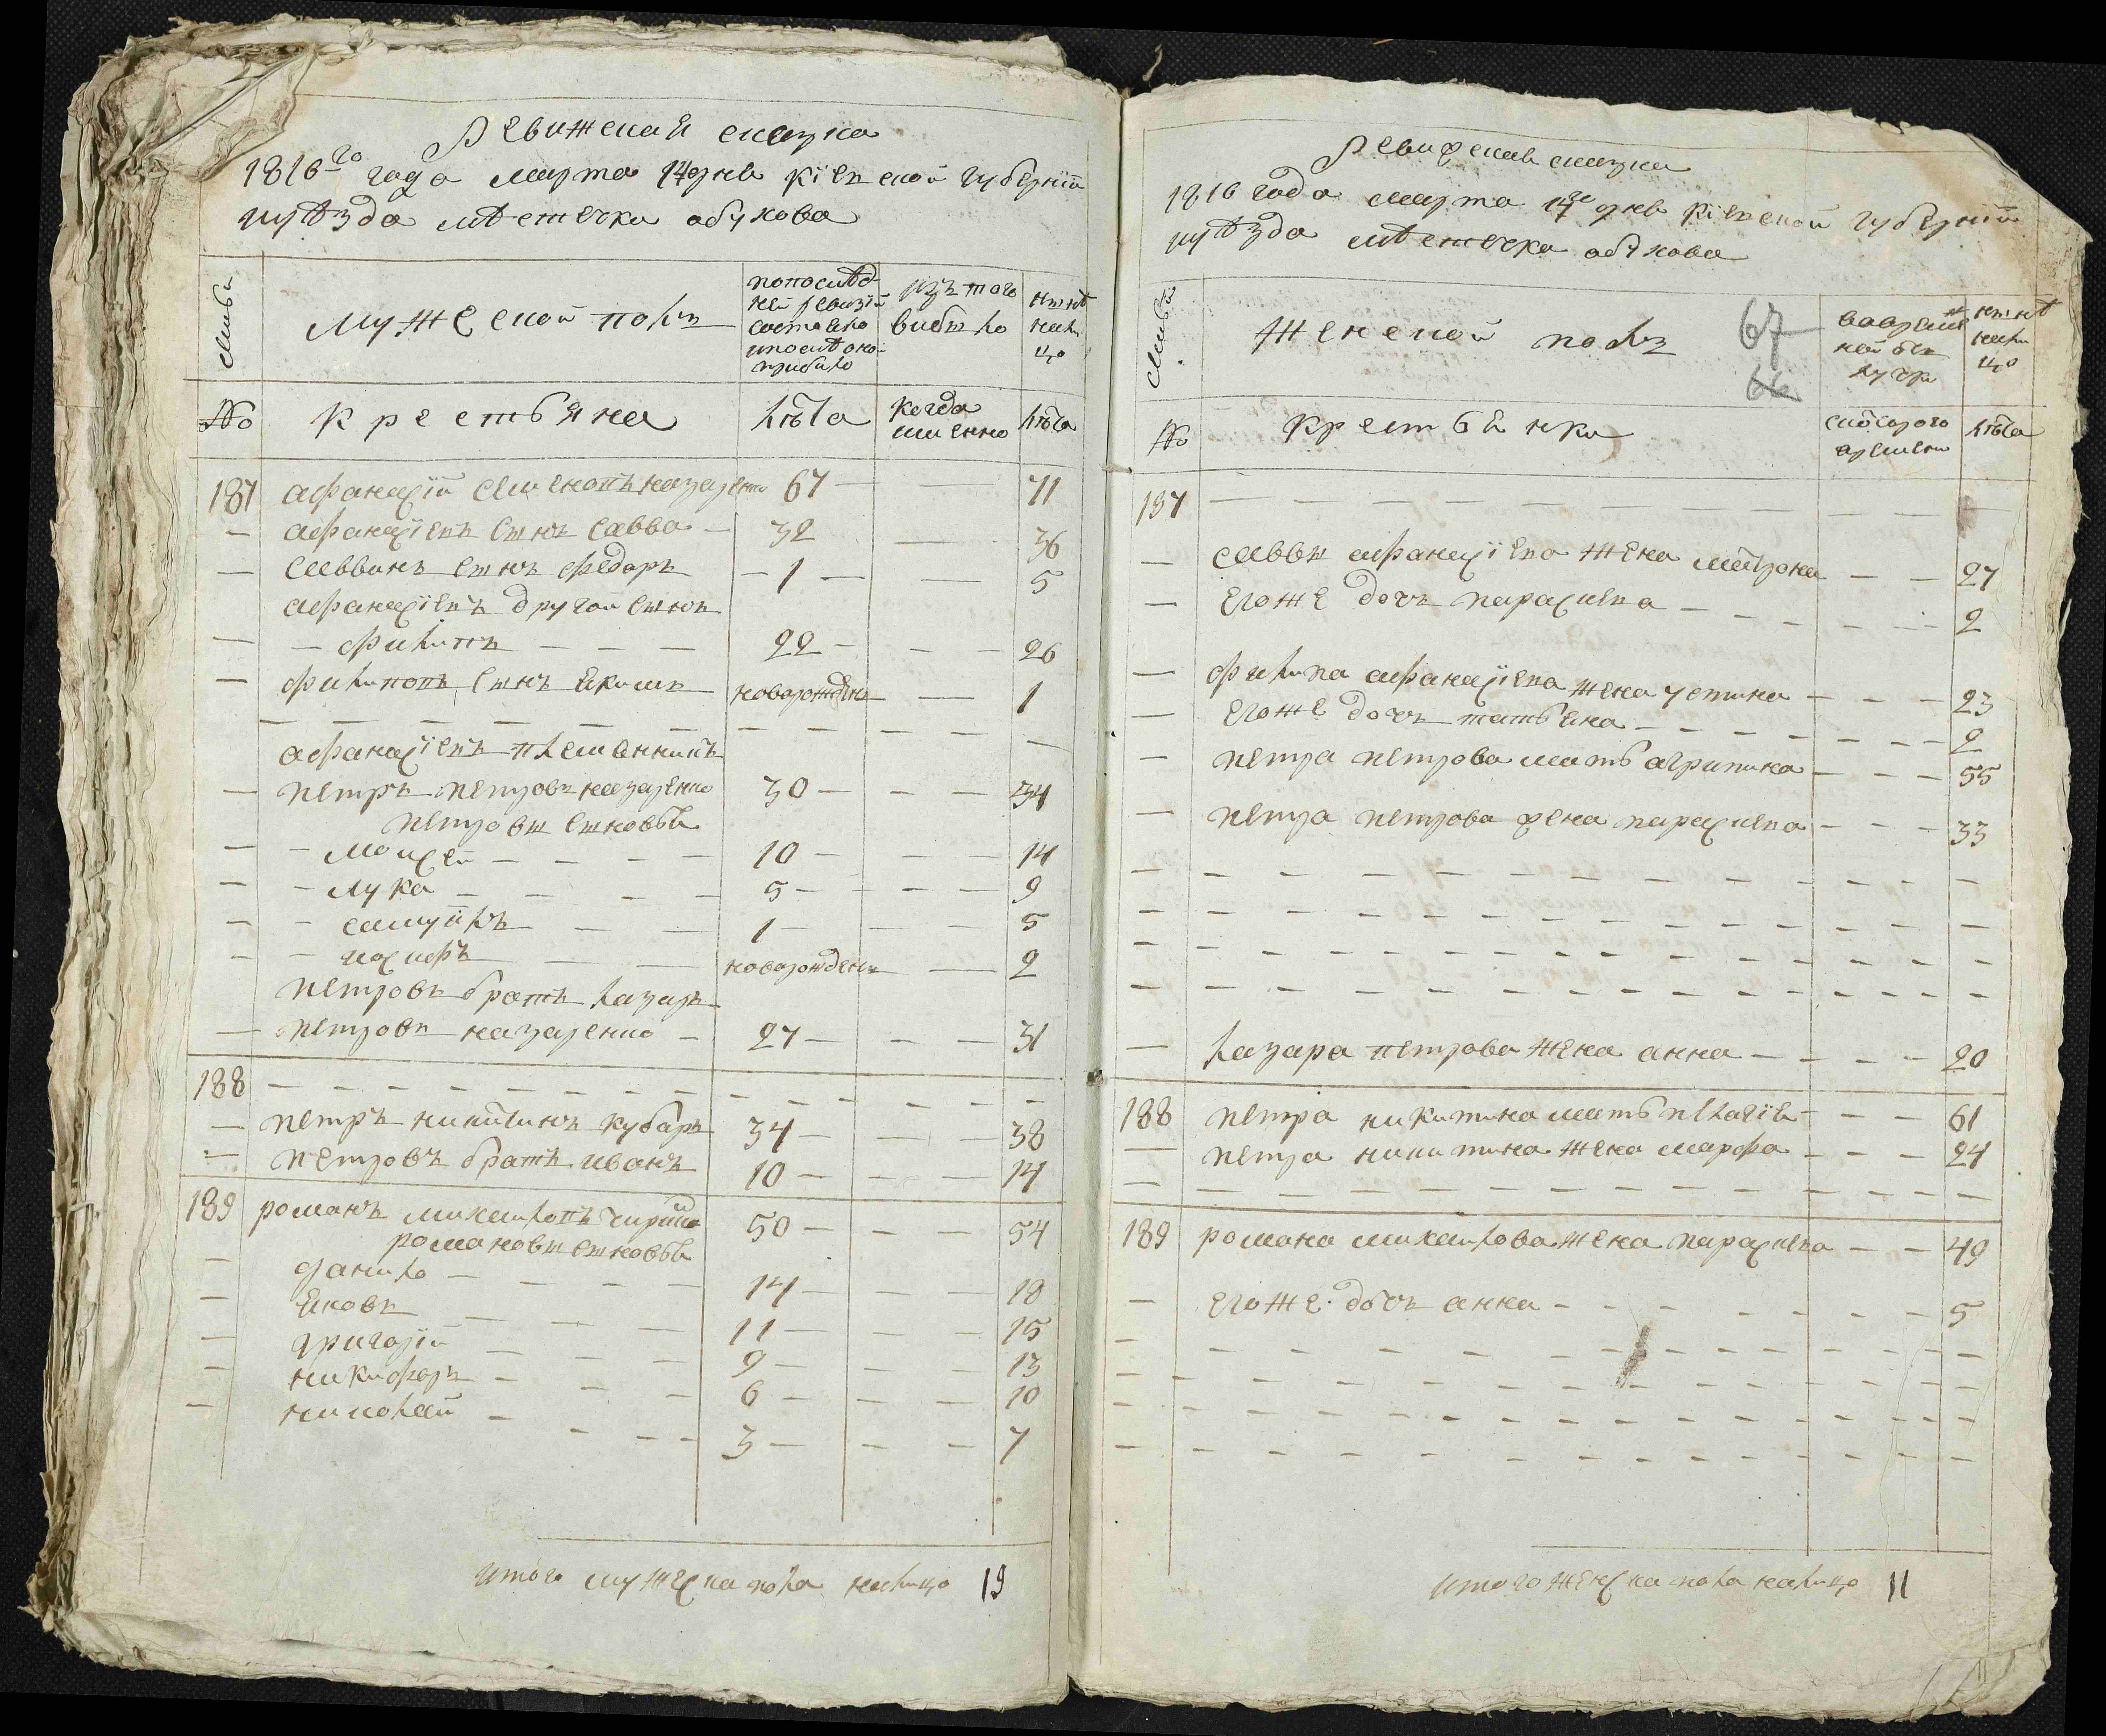 Ревижская сказка
1816го года марта 14 дня Кіевской губерніи
уѣзда мѣстечка обухова
Семьи
Мужеской полъ
попослѣд-
ней ревизіи
состояло
ипослѣ оно-
прибыло
изъ того
выбыло
нынѣ
нали
цо
№
Крестьяна
лѣта
когда
именно
лѣта
187 афанасій Семеновъ назаренко 67 71
афанасіевъ сынъ савва 32 36
саввинъ сынъ федоръ 1 5
афанасіевъ другой сынъ
филипъ 22 26
филиповъ сынъ Екимъ новорожденъ 1
афанасіевъ племянникъ
петръ петровъ назаренко 30 34
петровы сыновья
мойсей 10 14
лука 5 9
самуйлъ 1 5
иосифъ новорожденъ 2
петровъ братъ лазарь
петровъ назаренко 27 31
188
петръ никитинъ кубарь 34 38
петровъ братъ иванъ 10 14
189 романъ михайловъ 50 54
романовы сыновья
данило 14 18
Яковъ 11 15
григорій 9 13
никифоръ 6 10
николай 3 7
итого мужеска пола налицо 19
Ревижская сказка
1816 года марта 14го дня Кіевской губерніи
уѣзда мѣстечка обухова
Семьи
Женской полъ
67
66
вовремян-
ной от
лучки
нынѣ
нали
цо
№
Крестьянки
скоторого
времени
лѣта
187
саввы афанасіева жена матрона 27
егоже дочь парасцева 2
филипа афанасіева жена устина 23
егоже дочь татьяна 2
петра петрова мать агрипина 55
петра петрова жена парасцева 33
лазара петрова жена анна 20
188 петра никитина мать пелагія 61
петра никитина жена марфа 24
189 романа михайлова жена парасцева 49
егоже дочь анна 5
итого женска пола налицо 11